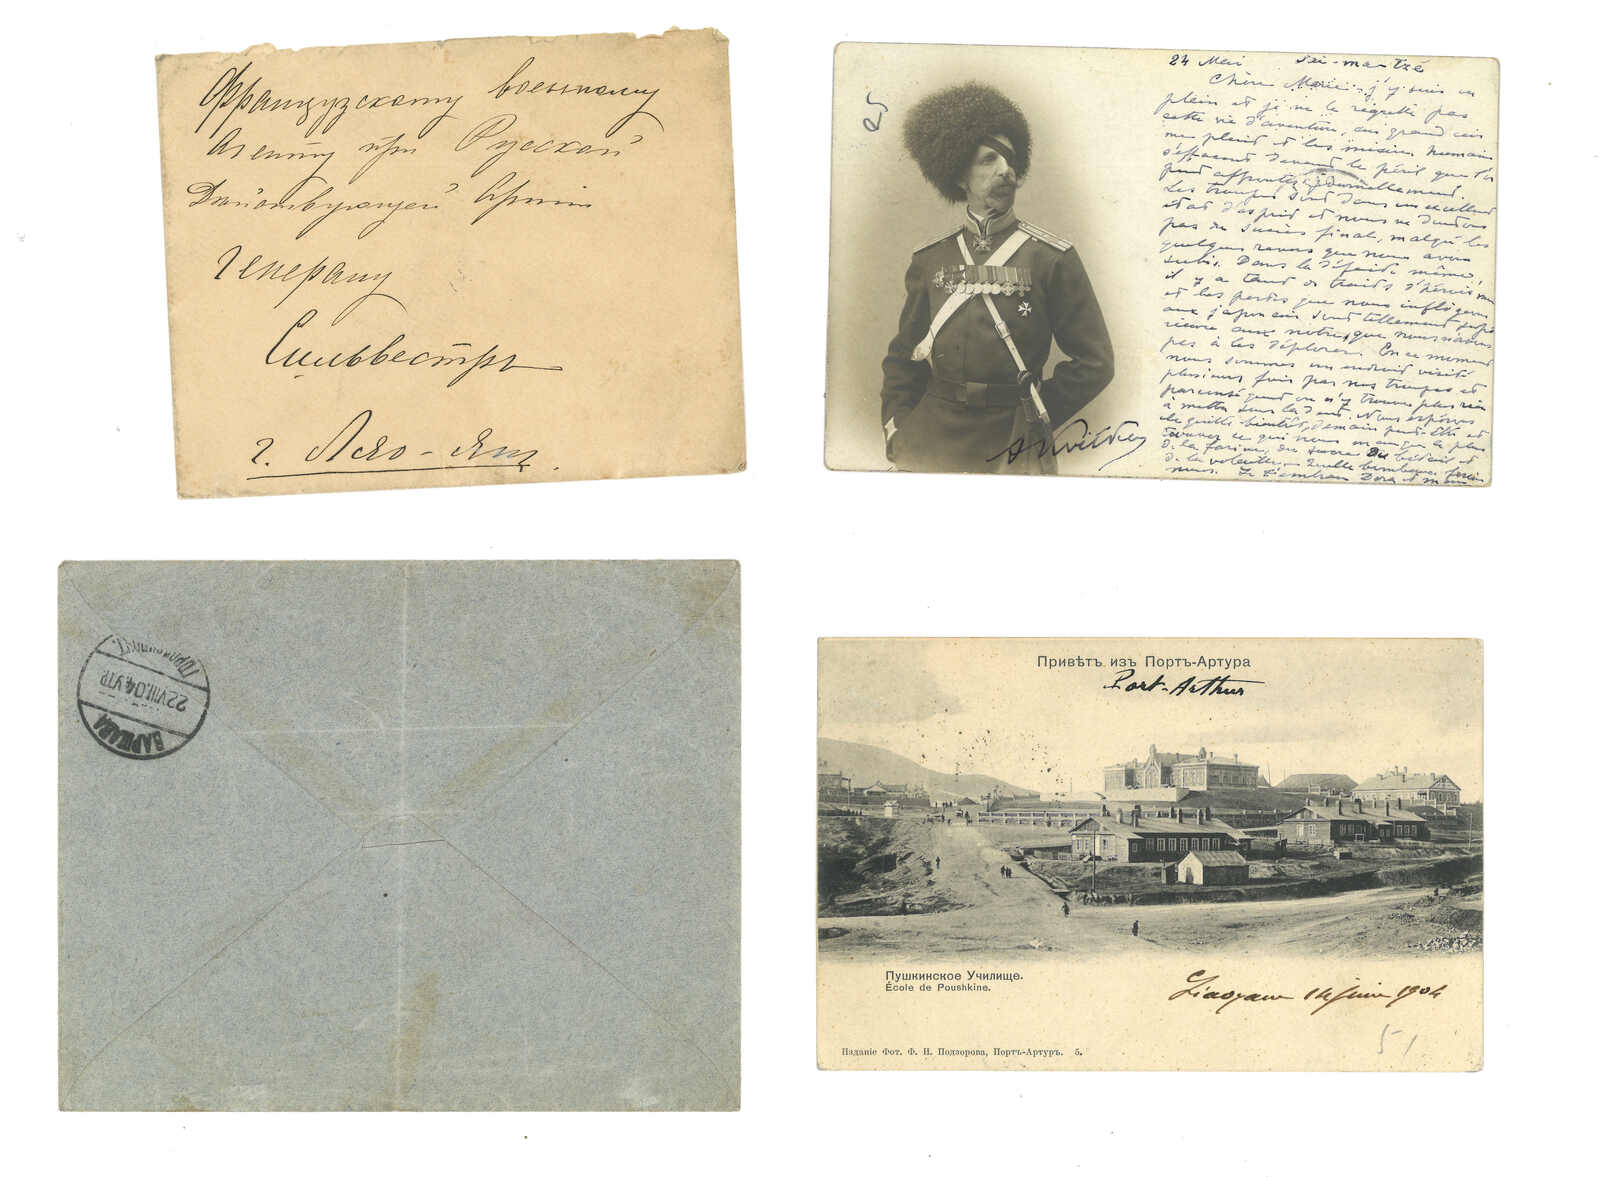 Французскому военному
Агенту при Русской
Действующей Армiи
Генералу
Сильвестръ
г. Ляо-Ян
25
24 Mai
Chère Marie, j'y suis en
plein et je ne le regrette pas
cette vie d'aventure, au grand air
me plait et les misères humaines
s'effacent devant le péril que l'on
peut affronter journellement.
Les troupes sont dans un excellent
état d'esprit et nous ne doutons
pas du succès final, malgré les
quelques revers que nous avons
subis. Dans la défaite même,
il y a tant de traits d'héroïsme
et les pertes que nous infligeons
aux japonais sont tellement supé
rieures aux notres, que nous n'avons
pas à les déplorer. En ce moment
nous sommes un endroit visité
plusieurs fois par nos troupes et
par conséquent on n'y trouve plus rien
à mettre sous la dent. Nous espérons
le quitter bientôt, demain peut-être et
trouver ce qui nous manque le plus
de la farine, du sucre
nous.
ВАРШАВА
22 VIII.04
Привѣтъ изъ Портъ-Артура
Port-Arthur
Пушкинское Училище.
École de Poushkine.
Liaoyan 14 juin 1904
51
Изданіе Фот. Ф. Н. Подзорова, Портъ-Артуръ. 5.